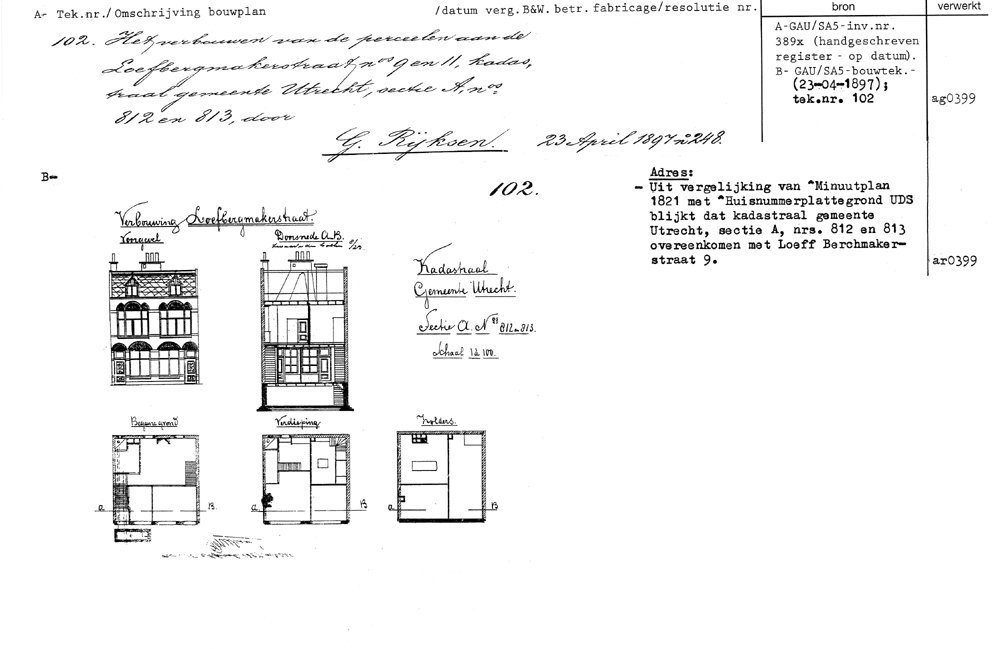 A- Tek.nr./Omschrijving bouwplan /datum verg.B&W. betr. fabricage/resolutie nr. bron verwerkt
102. Het verbouwen van de perceelen aan de
Loefbergmakerstraat, nos 9 en 11, kadas,
traal gemeente Utrecht, sectie A, nos.
812 en 813, door
G. Rijksen. 23 April 1897 no 248.
A-GAU/SA5-inv.nr.
389x (handgeschreven
register - op datum).
B- GAU/SA5-bouwtek.-
(23-04-1897);
tek.nr. 102
ag0399
B-
102.
Adres:
- Uit vergelijking van "Minuutplan
1821 met "Huisnummerplattegrond UDS
blijkt dat kadastraal gemeente
Utrecht, sectie A, nrs. 812 en 813
overeenkomen met Loeff Berchmaker-
straat 9.
ar0399
Verbouwing Loefbergmakerstraat.
Voorgevel
Doorsnede A.B.
Kadastraal
Gemeente Utrecht.
Sectie A. Nos 812 en 813.
Schaal 1 à 100.
Beganegrond
Verdieping
Zolders.
a B.
a B
a B